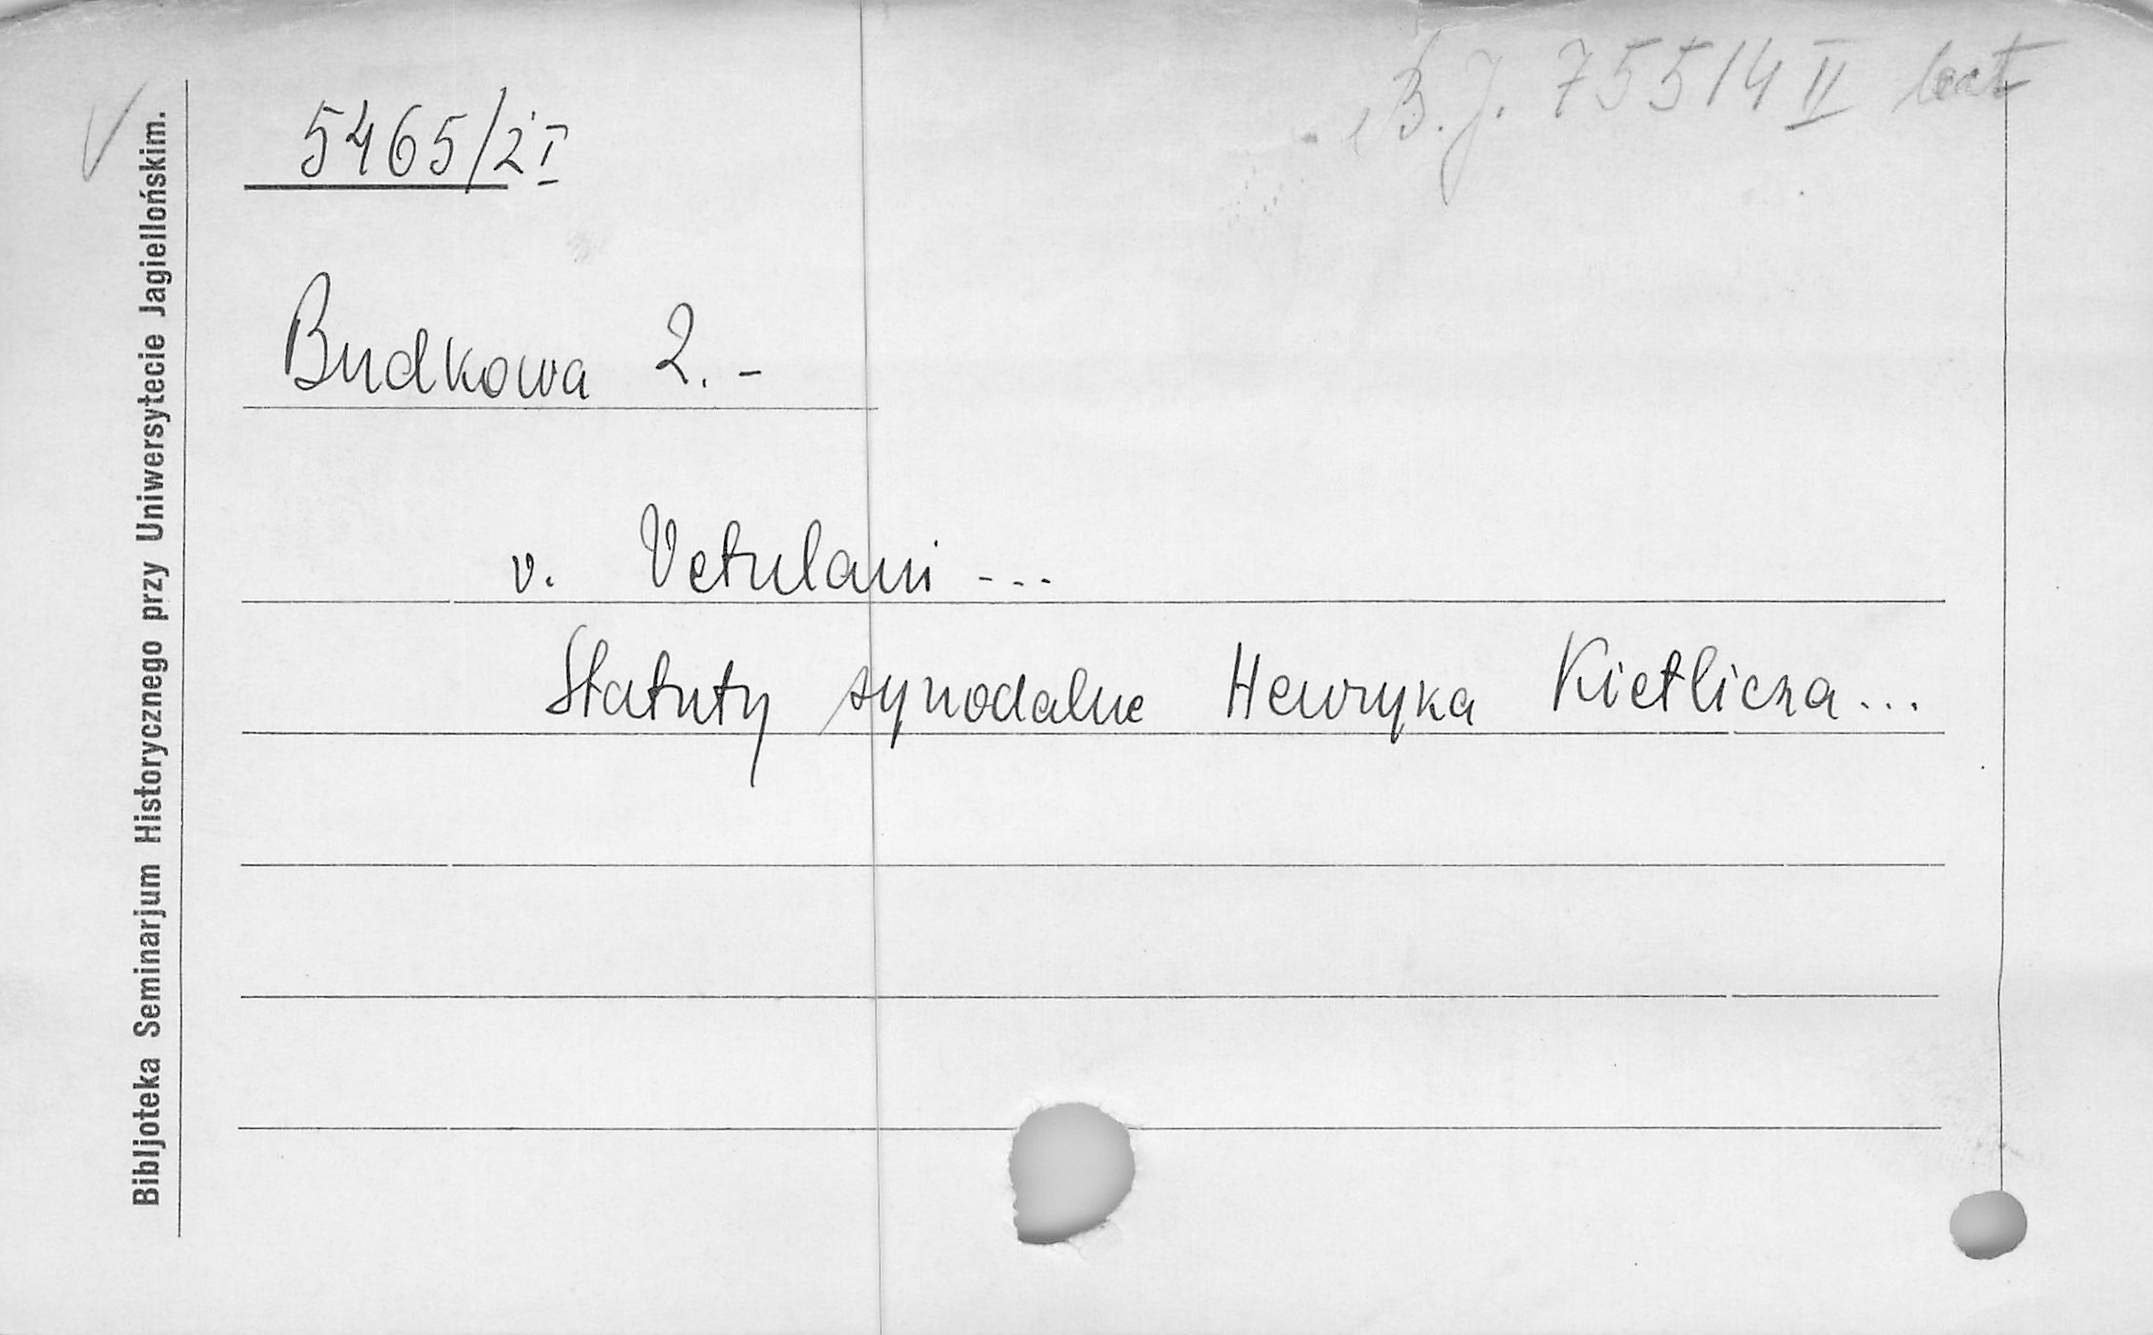 B.J. 75514 II
5465/2 I
Budkowa Z. -
v. Vetulani ...
Statuty synodalne Henryka Kietlicza ...
Bibljoteka Seminarjum Historycznego przy Uniwersytecie Jagiellońskim.